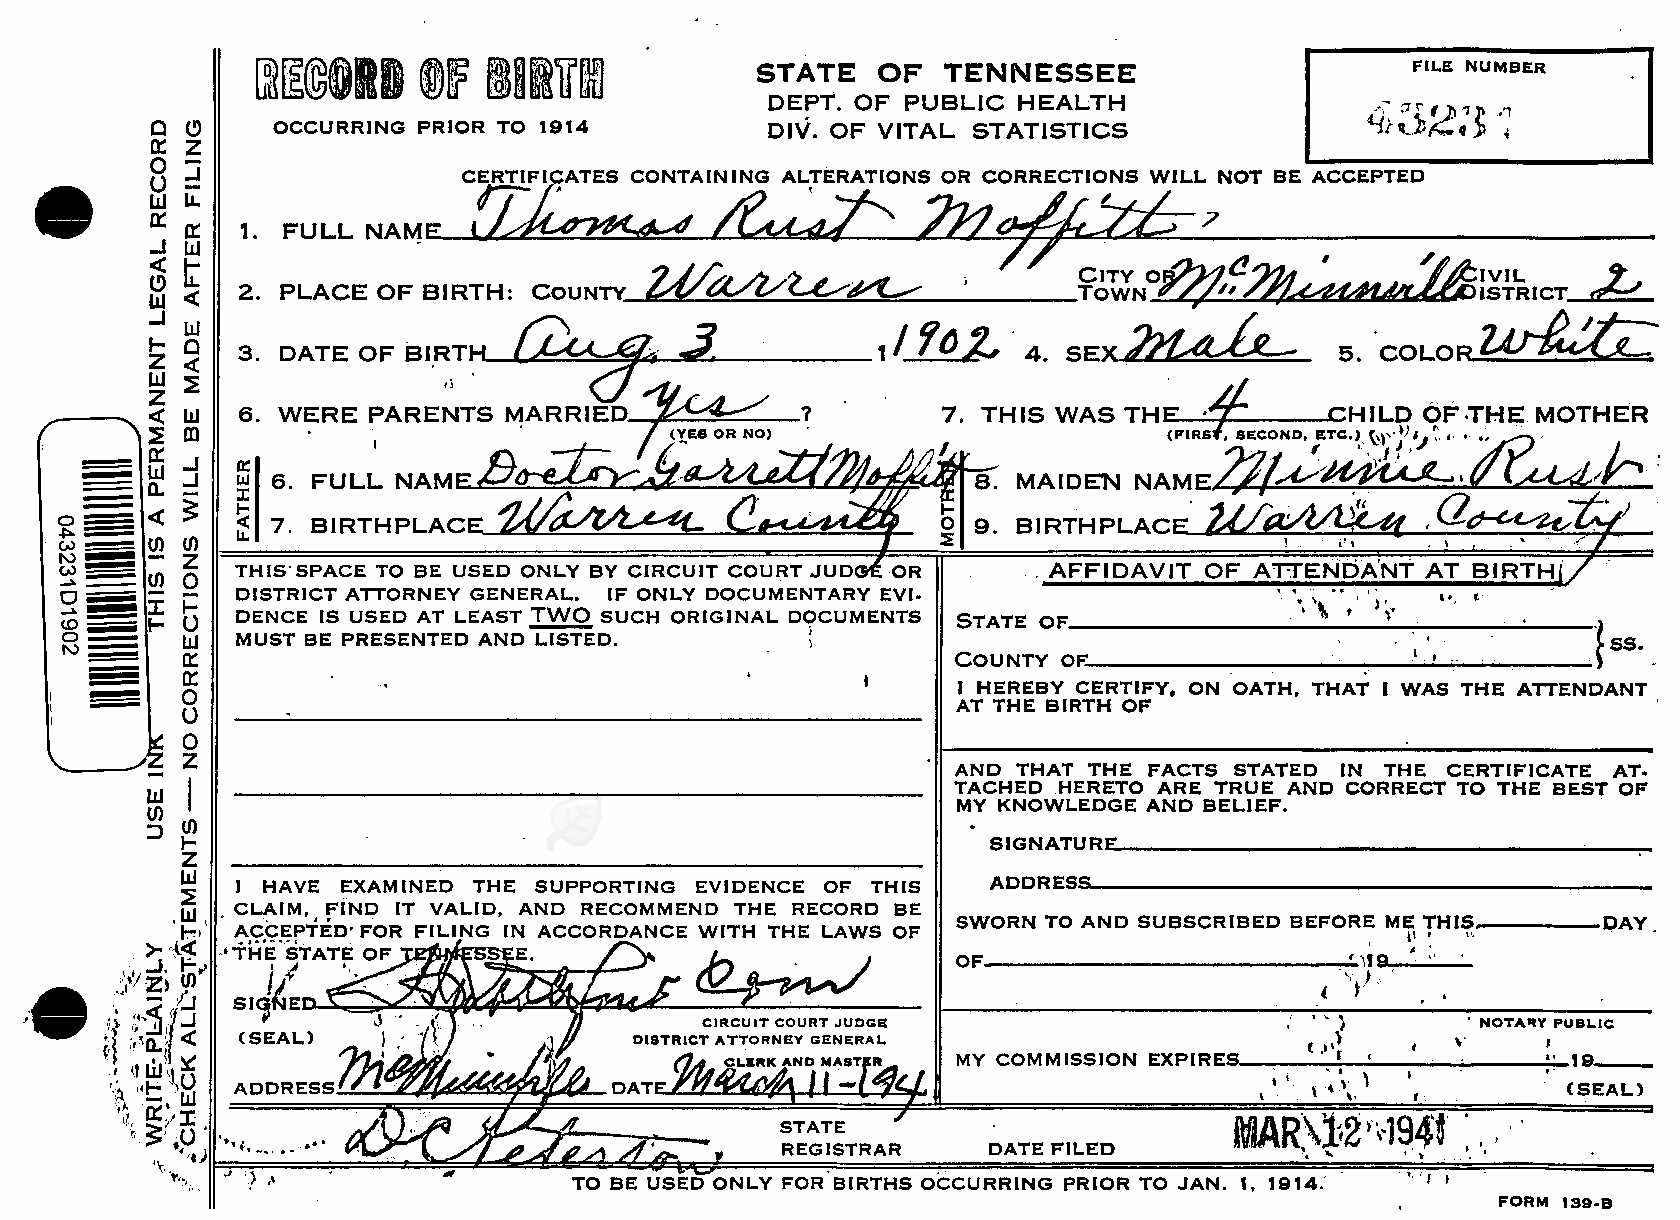 RECORD OF BIRTH
OCCURRING PRIOR TO 1914
STATE OF TENNESSEE
DEPT. OF PUBLIC HEALTH
DIV. OF VITAL STATISTICS
FILE NUMBER
43231
CERTIFICATES CONTAINING ALTERATIONS OR CORRECTIONS WILL NOT BE ACCEPTED
1. FULL NAME Thomas Rust Moffitt
2. PLACE OF BIRTH: COUNTY Warren CITY OR TOWN McMinnville CIVIL DISTRICT 2
3. DATE OF BIRTH Aug. 3. 1 1902 4. SEX Male 5. COLOR White
6. WERE PARENTS MARRIED Yes ? 7. THIS WAS THE 4 CHILD OF THE MOTHER
(YES OR NO) (FIRST, SECOND, ETC.)
FATHER
6. FULL NAME Doctor Garrett Moffitt
7. BIRTHPLACE Warren County
MOTHER
8. MAIDEN NAME Minnie Rust
9. BIRTHPLACE Warren County
THIS SPACE TO BE USED ONLY BY CIRCUIT COURT JUDGE OR
DISTRICT ATTORNEY GENERAL. IF ONLY DOCUMENTARY EVI-
DENCE IS USED AT LEAST TWO SUCH ORIGINAL DOCUMENTS
MUST BE PRESENTED AND LISTED.
I HAVE EXAMINED THE SUPPORTING EVIDENCE OF THIS
CLAIM, FIND IT VALID, AND RECOMMEND THE RECORD BE
ACCEPTED FOR FILING IN ACCORDANCE WITH THE LAWS OF
THE STATE OF TENNESSEE.
SIGNED
(SEAL)
CIRCUIT COURT JUDGE
DISTRICT ATTORNEY GENERAL
CLERK AND MASTER
ADDRESS McMinnville DATE March 11-194
AFFIDAVIT OF ATTENDANT AT BIRTH
STATE OF
COUNTY OF
SS.
I HEREBY CERTIFY, ON OATH, THAT I WAS THE ATTENDANT
AT THE BIRTH OF
AND THAT THE FACTS STATED IN THE CERTIFICATE AT-
TACHED HERETO ARE TRUE AND CORRECT TO THE BEST OF
MY KNOWLEDGE AND BELIEF.
SIGNATURE
ADDRESS
SWORN TO AND SUBSCRIBED BEFORE ME THIS DAY
OF 19
NOTARY PUBLIC
MY COMMISSION EXPIRES 19
(SEAL)
D C Peterson STATE REGISTRAR DATE FILED MAR 12 1941
TO BE USED ONLY FOR BIRTHS OCCURRING PRIOR TO JAN. 1, 1914.
FORM 139-B
WRITE PLAINLY USE INK THIS IS A PERMANENT LEGAL RECORD
CHECK ALL STATEMENTS — NO CORRECTIONS WILL BE MADE AFTER FILING
043231D1902